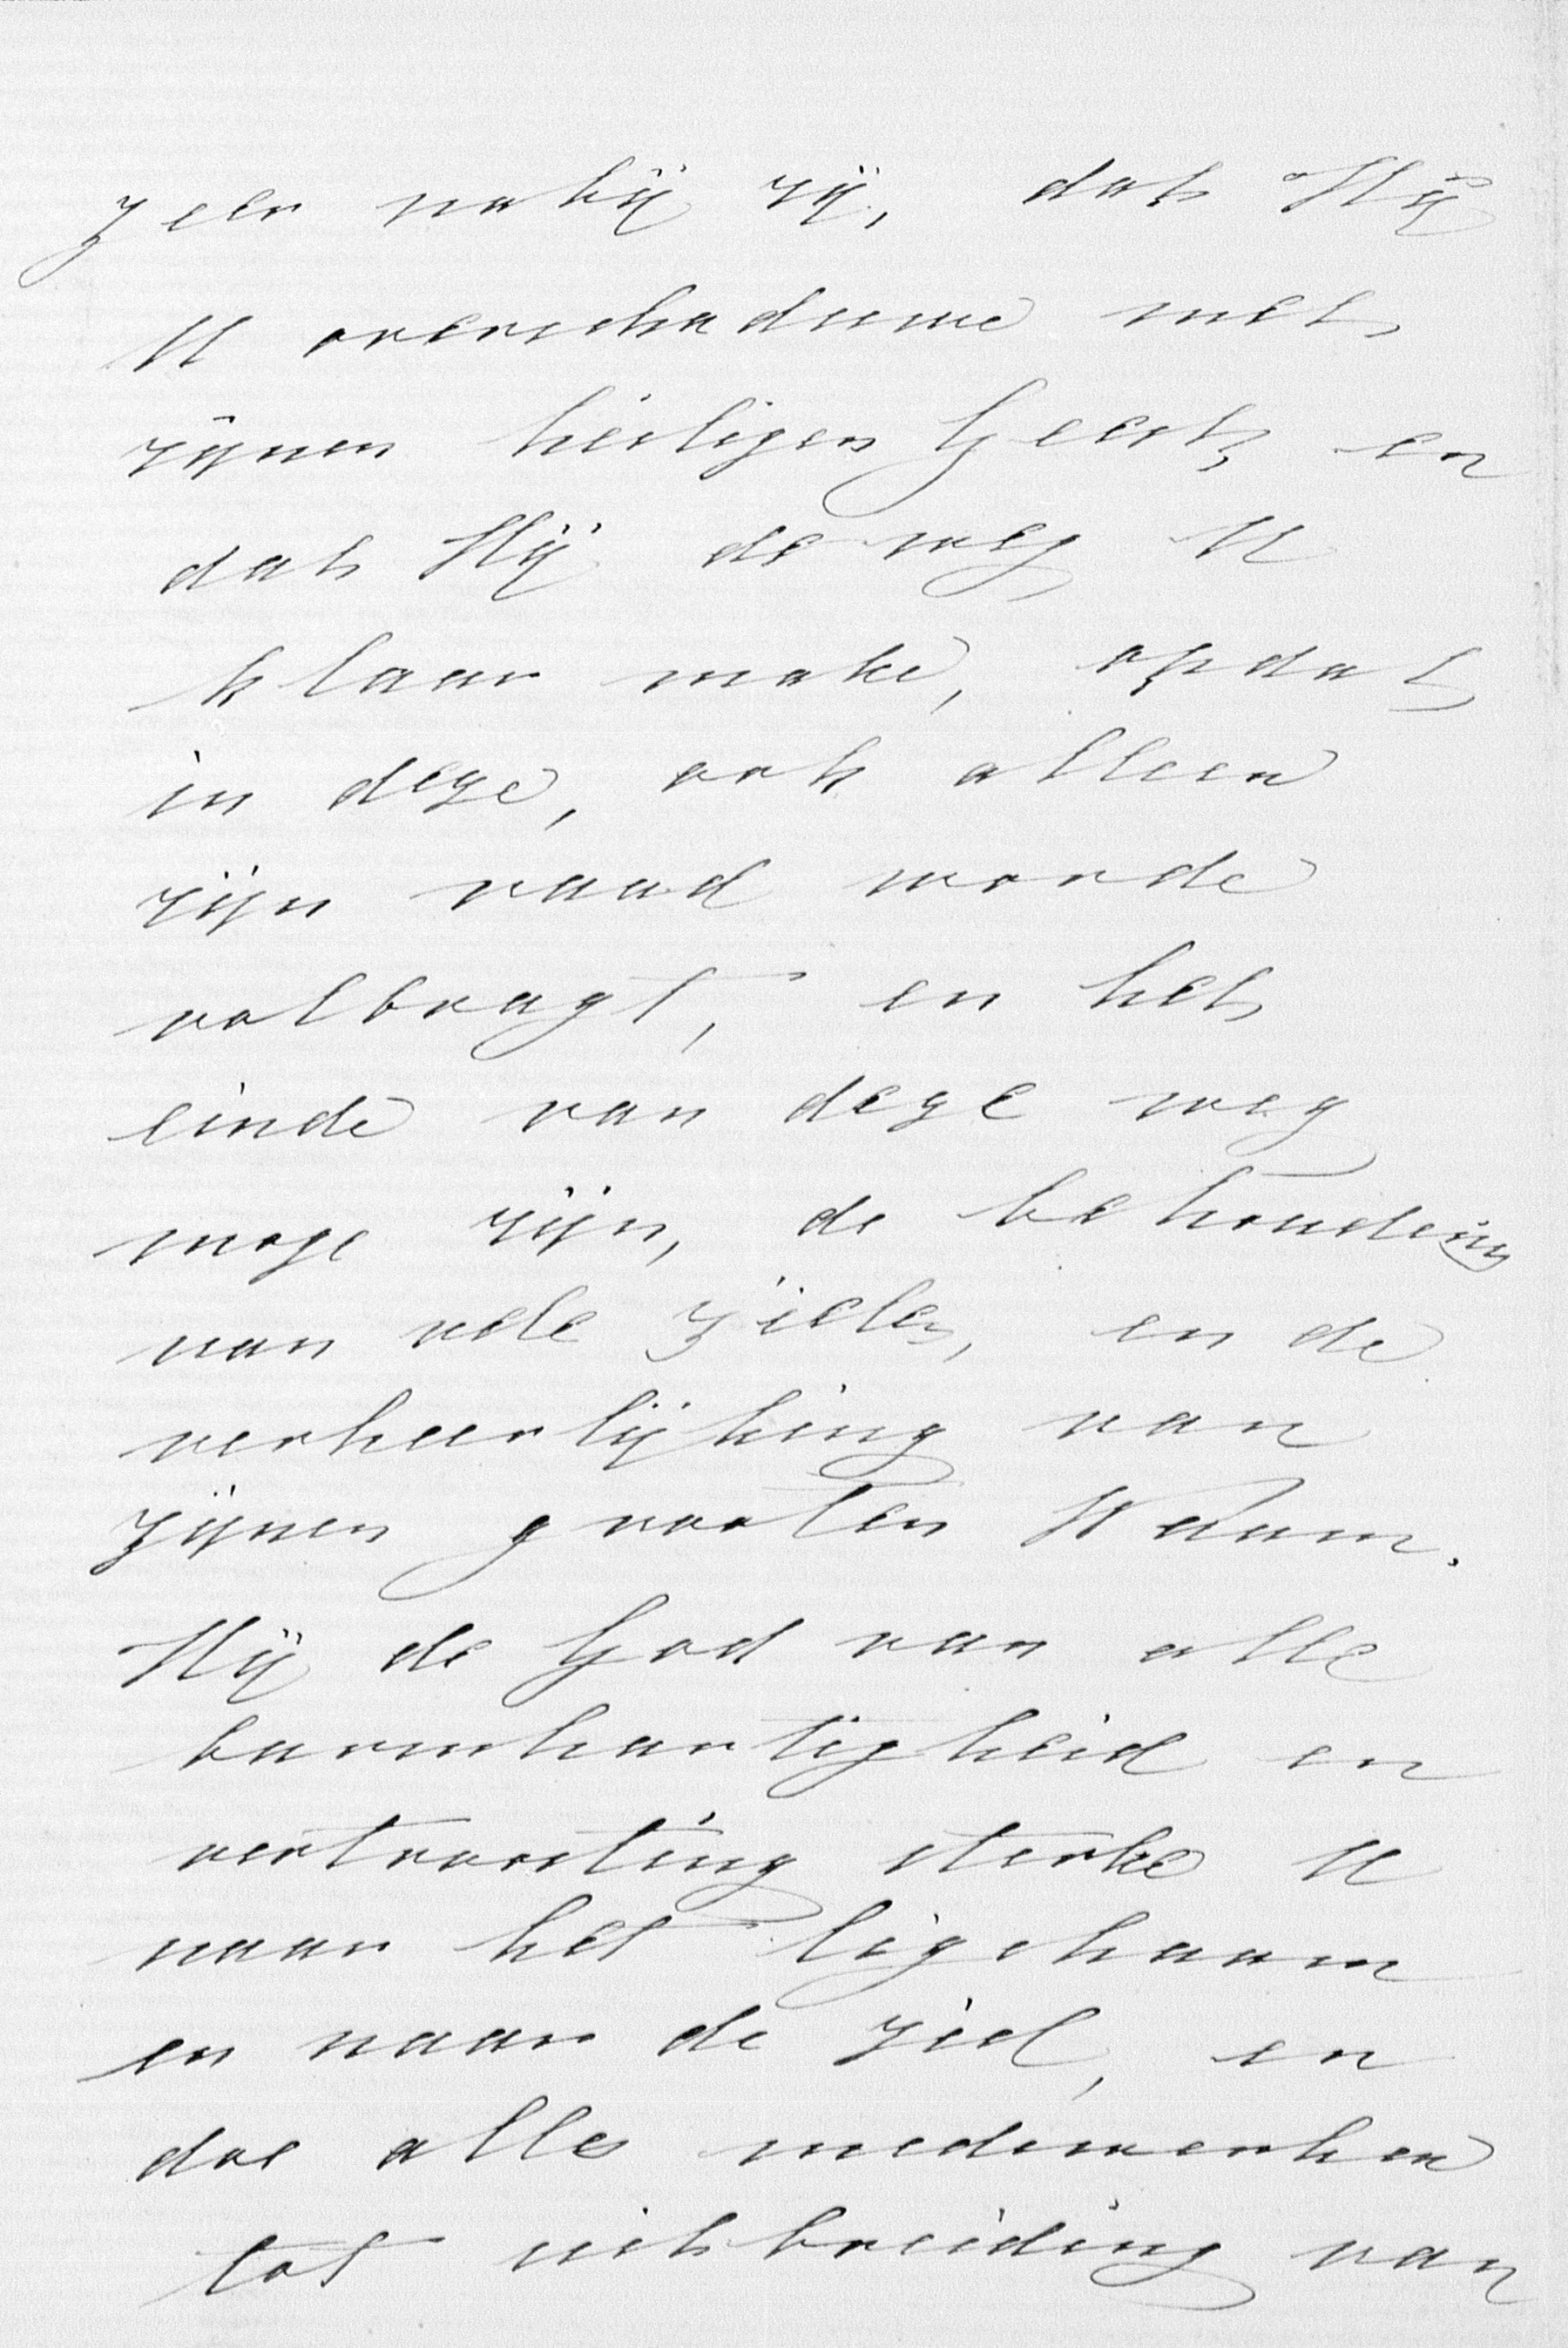 zeer nabij zij, dat Hij
U overschaduwe met
zijnen heiligen Geest, en
dat Hij de weg U
klaar make, opdat
in deze, ook alleen
zijn raad worde
volbragt, en het
einde van deze weg
moge zijn, de behouding
van vele zielen, en de
verheerlijking van
zijnen grooten Naam.
Hij de God van alle
barmhartigheid en
vertroosting sterke U
naar het ligchaam
en naar de ziel, en
doe alles medewerken
tot uitbreiding van